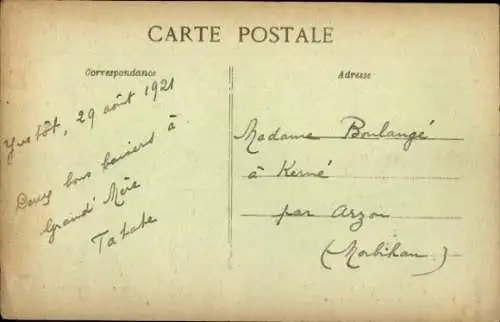 CARTE POSTALE
Correspondance
Yvetôt, 29 août 1921
Deux bons baisers à
Grand' Mère
Adresse
Madame Boulangé
à Kerné
par Arzon
(Morbihan)